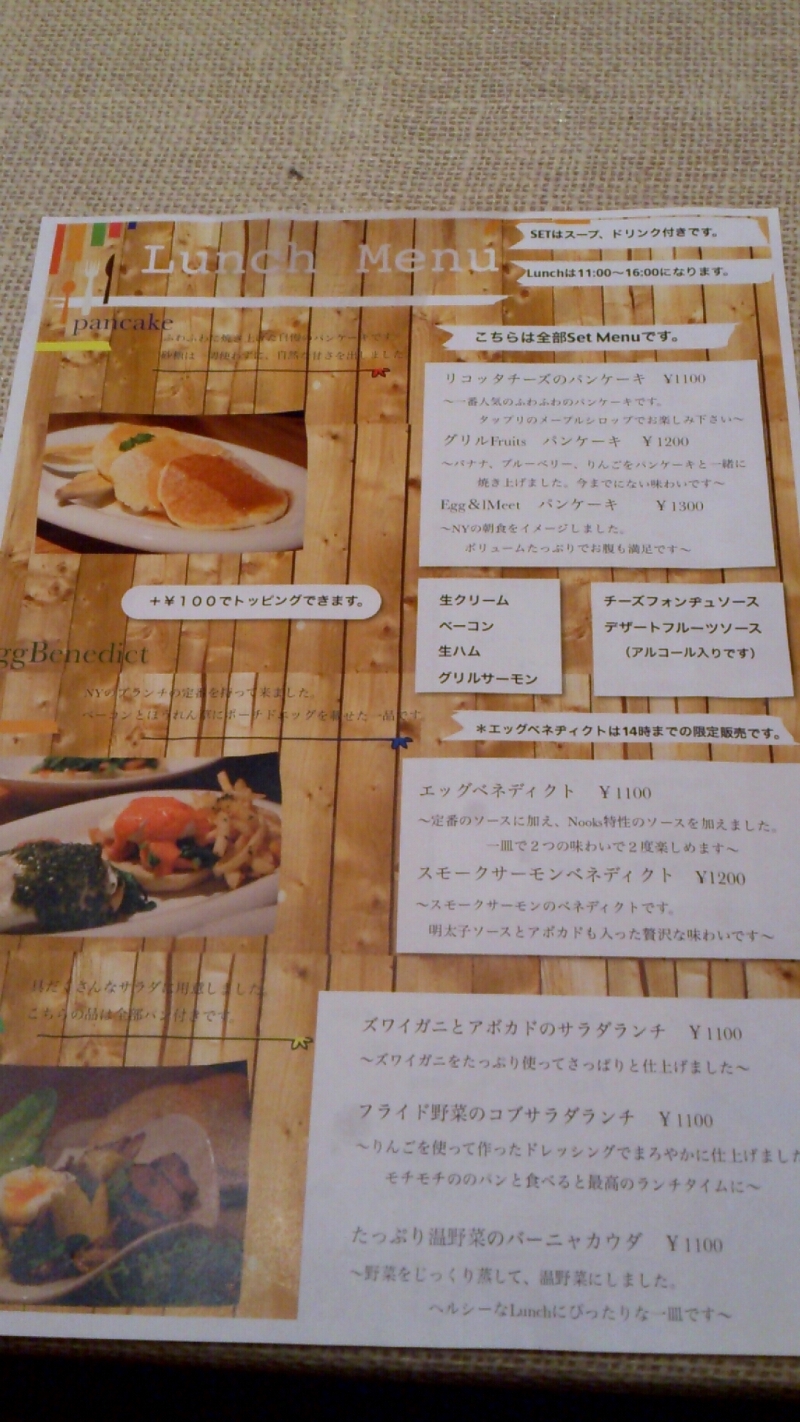 Lunch Menu
SETはスープ、ドリンク付きです。
Lunchは11:00〜16:00になります。
pancake
ふわふわに焼き上げた自慢のパンケーキです。
砂糖は一切使わずに、自然な甘さを出しました。
こちらは全部Set Menuです。
リコッタチーズのパンケーキ ¥1100
〜一番人気のふわふわのパンケーキです。
タップリのメープルシロップでお楽しみ下さい〜
グリルFruits パンケーキ ¥1200
〜バナナ、ブルーベリー、りんごをパンケーキと一緒に
焼き上げました。今までにない味わいです〜
Egg&lMeet パンケーキ ¥1300
〜NYの朝食をイメージしました。
ボリュームたっぷりでお腹も満足です〜
+¥100でトッピングできます。
生クリーム
ベーコン
生ハム
グリルサーモン
チーズフォンヂュソース
デザートフルーツソース
(アルコール入りです)
ggBenedict
NYのブランチの定番を持って来ました。
ベーコンとほうれん草にポーチドエッグを載せた一品です
*エッグベネヂィクトは14時までの限定販売です。
エッグベネディクト ¥1100
〜定番のソースに加え、Nooks特性のソースを加えました。
一皿で2つの味わいで2度楽しめます〜
スモークサーモンベネディクト ¥1200
〜スモークサーモンのベネディクトです。
明太子ソースとアボカドも入った贅沢な味わいです〜
具だくさんなサラダを用意しました。
こちらの品は全部パン付きです。
ズワイガニとアボカドのサラダランチ ¥1100
〜ズワイガニをたっぷり使ってさっぱりと仕上げました〜
フライド野菜のコブサラダランチ ¥1100
〜りんごを使って作ったドレッシングでまろやかに仕上げました
モチモチののパンと食べると最高のランチタイムに〜
たっぷり温野菜のバーニャカウダ ¥1100
〜野菜をじっくり蒸して、温野菜にしました。
ヘルシーなLunchにぴったりな一皿です〜